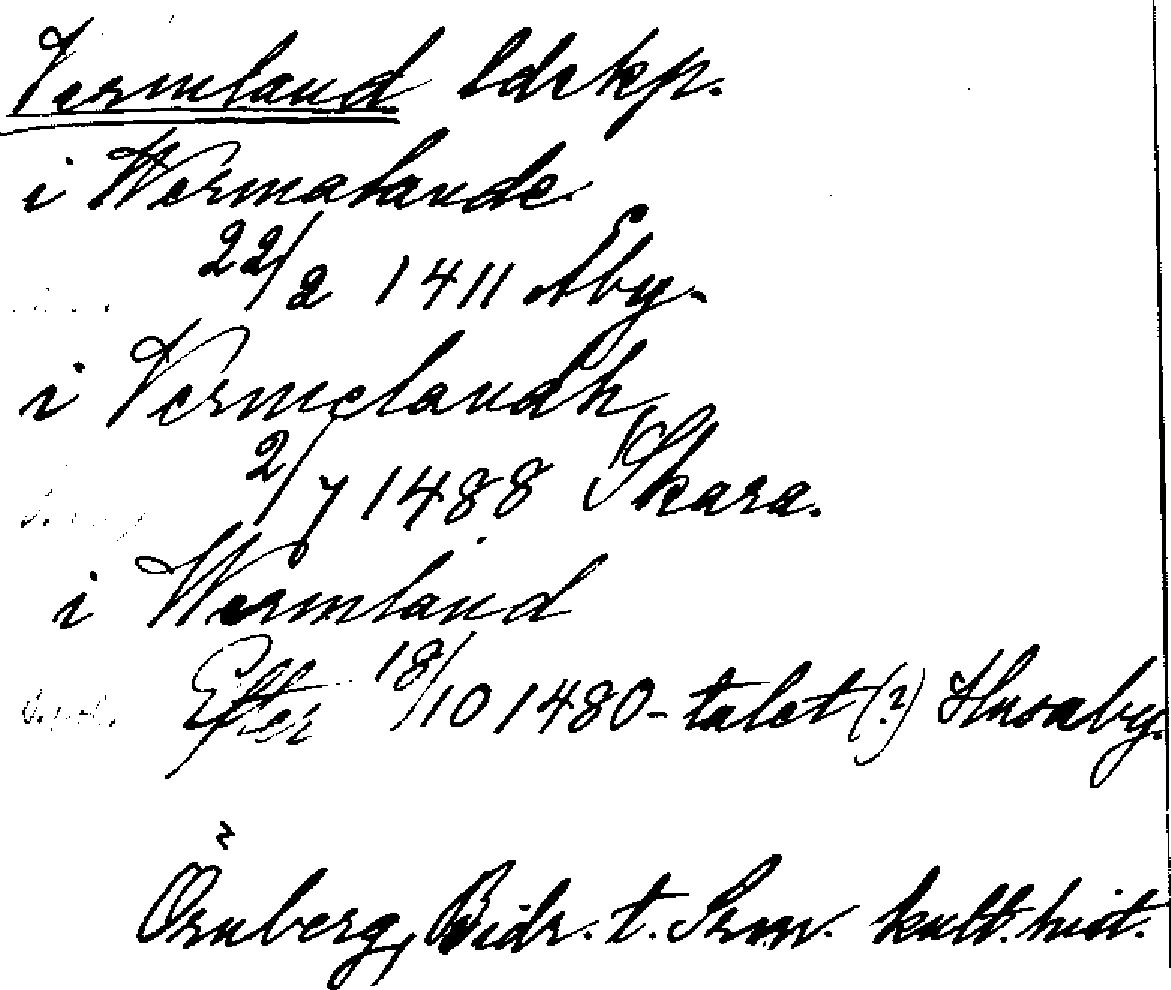 Vermland ldskp.
i Wermalande
22/2 1411 Åby.
i Vermelandh
2/7 1488 Skara.
i Wermland
Efter 18/10 1480-talet (?) Husaby.
Örnberg, Bidr. t. Srm. kult. hist.